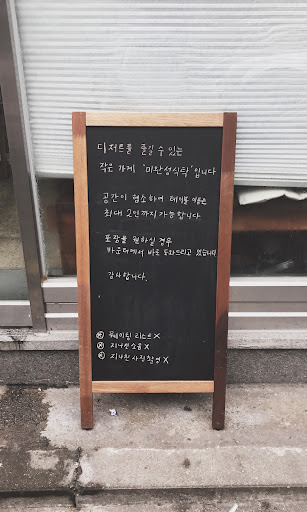 디저트를 즐길 수 있는
작은 가게 '미완성식탁' 입니다
공간이 협소하여 테이블 이용은
최대 2인까지 가능합니다.
포장을 원하실 경우
카운터에서 바로 도와드리고 있습니다
감사합니다.
웨이팅 리스트 X
지나친 소음 X
지나친 사진촬영 X